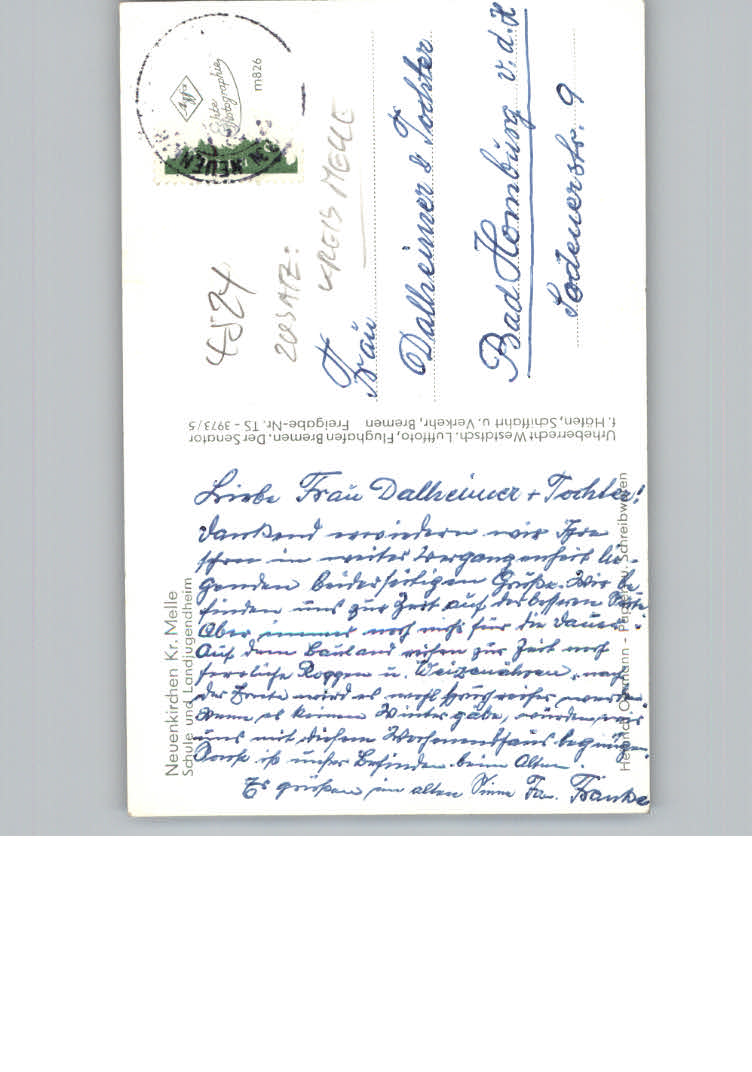 Neuenkirchen Kr. Melle
Schule und Landjugendheim
Liebe Frau Dalheimer + Tochter!
Dankend erwiedern wir Ihre
schon in weiter Vergangenheit lie-
genden beiderseitigen Grüße. Wir be-
finden uns zur Zeit auf der besseren Seite
Aber immer noch nicht für die Dauer.
Auf dem Bauland reifen zur Zeit noch
herrliche Roggen u. Weizenähren, nach
der Ernte wird es wohl spruchreifer werden
wenn es keinen Winter gäbe, würden wir
uns mit diesem Wochenendhaus begnügen.
Sonst ist unser Befinden beim Alten.
Es grüßen im alten Sinne Fa. Franke
Heinrich - Papier u. Schreibwaren
Urheberrecht Westdtsch. Luftfoto, Flughafen Bremen. Der Senator
f. Häfen, Schiffahrt u. Verkehr, Bremen Freigabe-Nr. TS - 3973/5
Agfa
Echte Photographie
m826
NEUEN
4524
ZUSATZ:
KREIS MELLE
Frau
Dalheimer & Tochter
Bad Homburg v. d. H
Sodenerstr. 9